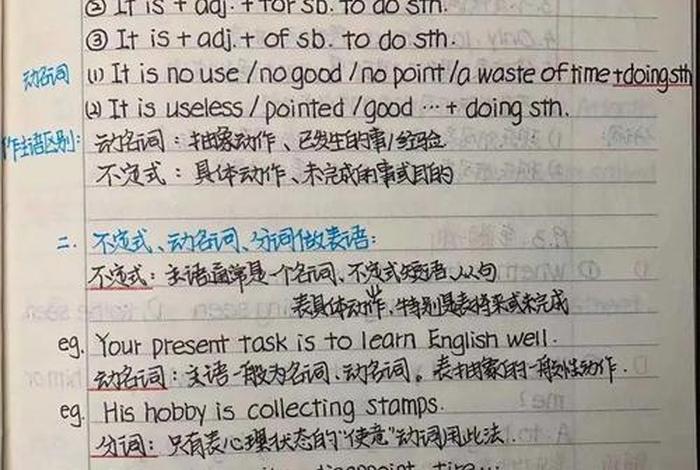 ② It is + adj. + for sb. to do sth.
③ It is + adj. + of sb. to do sth.
动名词 (1) It is no use / no good / no point / a waste of time + doing sth
(2) It is useless / pointed / good … + doing sth.
作主语区别: 动名词: 抽象动作、已发生的事/经验
不定式: 具体动作、未完成的事或目的
二. 不定式、动名词、分词做表语:
不定式: 主语通常是一个名词、不定式短语、从句
表具体动作, 特别是表将来或未完成
eg. Your present task is to learn English well.
动名词: 主语一般为名词、动名词。表抽象的一般性动作.
eg. His hobby is collecting stamps.
分词: 只有表心理状态的"使意"动词用此法.
disappoint, tire